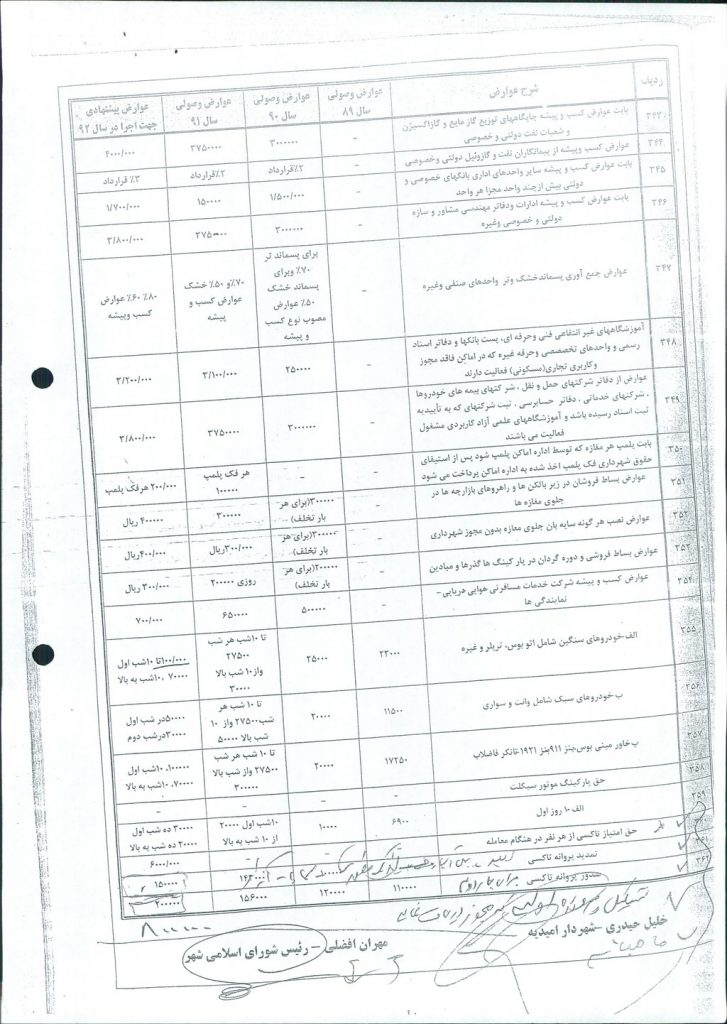 ردیف شرح عوارض عوارض وصولی سال ۸۹ عوارض وصولی سال ۹۰ عوارض وصولی سال ۹۱ عوارض پیشنهادی جهت اجرا در سال ۹۲
۳۴۳ بابت عوارض کسب و پیشه جایگاههای توزیع گاز مایع و گازاکسیژن و شعبات نفت دولتی و خصوصی - ۳۰۰۰۰۰۰ ۳۷۵۰۰۰۰ ۴۰۰۰/۰۰۰
۳۴۴ عوارض کسب وپیشه از پیمانکاران نفت و گازوئیل دولتی وخصوصی - ۲٪قرارداد ۲٪قرارداد ۳٪ قرارداد
۳۴۵ بابت عوارض کسب و پیشه سایر واحدهای اداری بانکهای خصوصی و دولتی بیش ازچند واحد مجزا هر واحد - ۱/۵۰۰/۰۰۰ ۱۵۰۰۰۰ ۱/۷۰۰/۰۰۰
۳۴۶ بابت عوارض کسب و پیشه ادارات ودفاتر مهندسی مشاور و سازه دولتی و خصوصی وغیره - ۳۰۰۰۰۰۰ ۳۷۵۰۰۰۰ ۳/۸۰۰/۰۰۰
۳۴۷ عوارض جمع آوری پسماندخشک وتر واحدهای صنفی وغیره - برای پسماند تر ۷۰٪ وبرای پسماند خشک ۵۰٪ عوارض مصوب نوع کسب و پیشه ۷۰٪و ۵۰٪ خشک عوارض کسب و پیشه ۸۰٪ ۶۰٪ عوارض کسب وپیشه
۳۴۸ آموزشگاههای غیر انتفاعی فنی وحرفه ای، پست بانکها و دفاتر اسناد رسمی و واحدهای تخصصی وحرفه غیره که در اماکن فاقد مجوز وکاربری تجاری(مسکونی) فعالیت دارند - ۲۵۰۰۰۰ ۳/۱۰۰/۰۰۰ ۳/۲۰۰/۰۰۰
۳۴۹ عوارض از دفاتر شرکتهای حمل و نقل ، شرکتهای بیمه های خودروها ، شرکتهای خدماتی ، دفاتر حسابرسی ، ثبت شرکتهای که به تأییدیه ثبت اسناد رسیده باشد و آموزشگاههای علمی آزاد کاربردی مشغول فعالیت می باشند - ۳۰۰۰۰۰۰ ۳۷۵۰۰۰۰ ۳/۸۰۰/۰۰۰
۳۵۰ بابت پلمپ هر مغازه که توسط اداره اماکن پلمپ شود پس از استیفای حقوق شهرداری فک پلمپ اخذ شده به اداره اماکن پرداخت می شود - - هر فک پلمپ ۱۰۰۰۰۰ ۲۰۰/۰۰۰ هرفک پلمپ
۳۵۱ عوارض بساط فروشان در زیر بالکن ها و راهروهای بازارچه ها در جلوی مغازه ها - ۳۰۰۰۰۰(برای هر بار تخلف) ۳۰۰۰۰۰ ۴۰۰۰۰۰ ریال
۳۵۲ عوارض نصب هر گونه سایه بان جلوی مغازه بدون مجوز شهرداری - ۳۰۰۰۰۰(برای هر بار تخلف) ۳۰۰/۰۰۰ریال ۴۰۰/۰۰۰ریال
۳۵۳ عوارض بساط فروشی و دوره گردان در پارکینگ ها گذرها و میادین - ۲۰۰۰۰۰(برای هر بار تخلف) روزی ۲۰۰۰۰۰ ۳۰۰/۰۰۰ ریال
۳۵۴ عوارض کسب و پیشه شرکت خدمات مسافرتی هوایی دریایی - نمایندگی ها - ۵۰۰۰۰۰ ۶۵۰۰۰۰ ۷۰۰/۰۰۰
۳۵۵ الف-خودروهای سنگین شامل اتو بوس، تریلر و غیره ۲۳۰۰۰ ۲۵۰۰۰ تا ۱۰شب هر شب ۲۷۵۰۰ واز۱۰ شب بالا ۳۰۰۰۰ ۱۰۰/۰۰۰تا ۱۰شب اول ۷۰۰۰۰ ،۱۰شب به بالا
۳۵۶ ب خودروهای سبک شامل وانت و سواری ۱۱۵۰۰ ۲۰۰۰۰ تا ۱۰ شب هر شب۲۷۵۰۰ واز ۱۰ شب بالا ۵۰۰۰۰ ۵۰۰۰۰در شب اول ۳۰۰۰۰درشب دوم
۳۵۷ پ خاور مینی بوس،بنز ۹۱۱بنز ۱۹۲۱-تانکر فاضلاب ۱۷۲۵۰ ۲۰۰۰۰ تا ۱۰ شب هر شب ۲۷۵۰۰ واز شب بالا ۳۰۰۰۰۰ ۱۰۰۰۰۰،۱۰شب اول ۷۰۰۰۰،۱۰شب به بالا
۳۵۸ حق پارکینگ موتور سیکلت - -
۳۵۹ الف ۱۰ روز اول ۶۹۰۰ ۱۰۰۰۰ ۱۰شب اول ۲۰۰۰۰ از ۱۰ شب به بالا ۳۰۰۰۰ ده شب اول ۲۰۰۰۰ ده شب به بالا
حق امتیاز تاکسی از هر نفر در هنگام معامله ۶۰۰۰/۰۰۰
تمدید پروانه تاکسی ۱۵۰۰۰۰
۳۶۲ صدور پروانه تاکسی ۱۱۰۰۰۰ ۱۲۰۰۰۰ ۱۵۶۰۰۰ ۲۰۰۰۰۰
برای بار دوم
خلیل حیدری -شهردار امیدیه
مهران افضلی - رئیس شورای اسلامی شهر